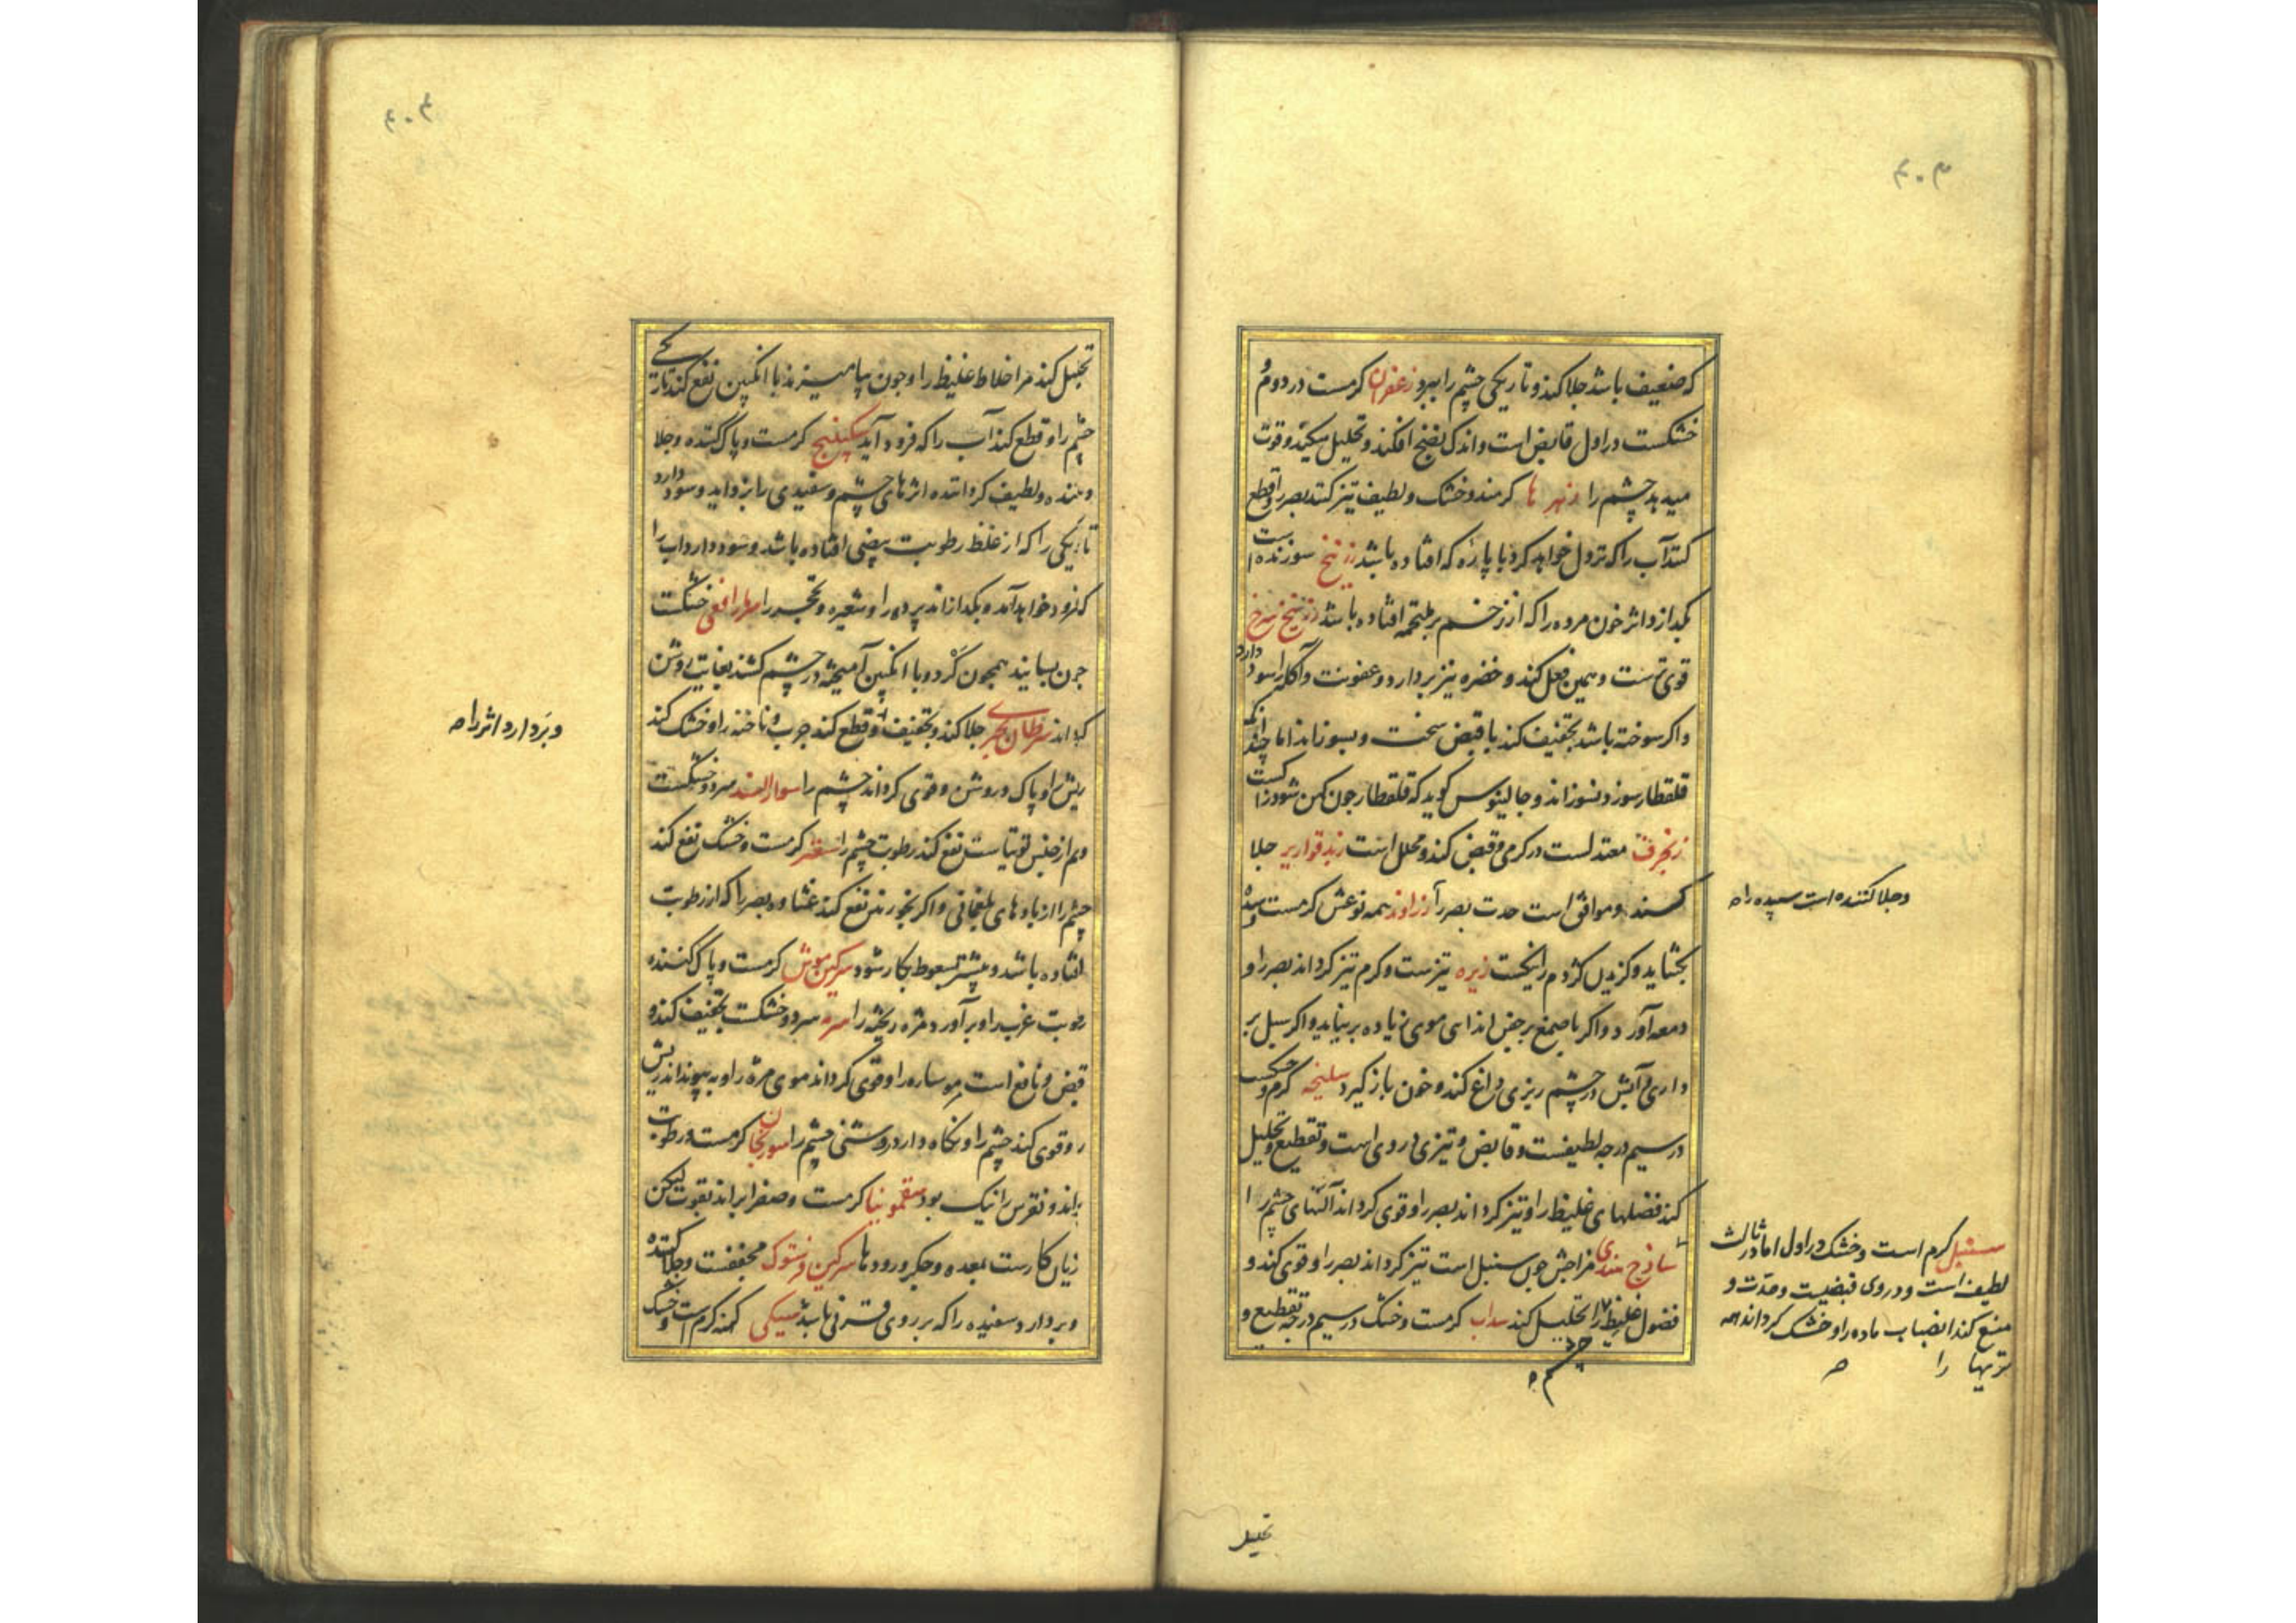 که ضعیف باشد جلا کند و تاریکی چشم را ببرد زعفران کرمست در دوم و
خشکست در اول قابض است و اندک نضج افکند و تحلیل میکند و قوت
میدهد چشم را زهر ها کرمند و خشک و لطیف تیز کنند بصر را و قطع
کنند آب را که نزول خواهد کرد با پاره که افتاده باشد زرنیخ سوزنده است
بکدازد اثر خون مرده را که از زخم بر ملتحمه افتاده باشد زرنیخ سرخ
قوی ترست و همین فعل کند و خضره نیز بردارد و عفونت و آکله را سود دارد
و اکر سوخته باشد تجفیف کند با قبض سخت و بسوزاند اما چندانکه
قلقطار سوزد نسوزاند و جالینوس کوید که قلقطار چون کهن شود زاکست
زنجرف معتدلست در کرمی و قبض کند و محلل است زبد قواریر جلا
کند و موافق است حدت بصر را زراوند همه نوعش کرمست و سده
بکشاید و کزیدن کژدم را زیره تیزست و کرم تیز کرداند بصر را و
دمعه آورد و اکر با صمغ بر جفن اندایی موی زیاده بر نیاید و اکر سبل بر
داری و آبش در چشم ریزی داغ کند و خون باز کیرد سلیخه کرم و خشکست
در سیم درجه لطیفست و قابض و تیزی در وی است و تقطیع و تحلیل
کند فضلهای غلیظ را و تیز کرداند بصر را و قوی کرداند آلتهای چشم را
ساذج هندی مزاجش چون سنبل است تیز کرداند بصر را و قوی کند و
فضول غلیظ را تحلیل کند سداب کرمست و خشک در سیم درجه تقطیع و
چشم
و جلا کننده است سپیده را صح
سنبل کرم است و خشک در اول اما در ثالث
لطیف است و در وی قبضیت و حدت و
منع کند انصباب ماده را و خشک کرداند همه
تریها را صح
تحلیل
تحلیل کند مر اخلاط غلیظ را و چون بیامیزند با انکبین نفع کند تاریکی
چشم را و قطع کند آب را که فرود آید سکبینج کرمست و پاک کننده و جلا
دهنده و لطیف کرداننده اثر های چشم و سفیدی را بزداید و سود دارد
تاریکی را که از غلظ رطوبت بیضی افتاده باشد و سود دارد آب را
که فرود خواهد آمد و بکدازاند پرده را و شعیره و تحجر را سر مار افعی خشکست
چون بسایند همچون کرد و با انکبین آمیخته در چشم کشند بغایت روشن
کرداند سرطان بحری جلا کند و تجفیف و قطع کند جرب و ناخنه را و خشک کند
ریش را و پاک و روشن و قوی کرداند چشم را سوار الهند سرد و خشکست
و هم از جنس توتیاست نفع کند رطوبت چشم را سعتر کرمست و خشک نفع کند
چشم را از بادهای بلغمانی و اکر بخورندش نفع کند غشاوه بصر را که از رطوبت
افتاده باشد و بیشتر بسعوط بکار شود سرکین موش کرمست و پاک کننده
رطوبت غرب را و بر آورد مژه ریخته را سرمه سرد و خشکست تجفیف کند و
قبض و نافع است مر ستاره را و قوی کرداند موی مژه را و به پیونداند ریش
را و قوی کند چشم را و نکاه دارد روشنی چشم را سورنجان کرمست و رطوبت
براند و نقرس را نیک بود سقمونیا کرمست و صفرا براند بقوت لیکن
زیان کارست بمعده و جکر و رودها سرکین فرستوک مجففست و جلا کننده
و بردارد سفیده را که بر روی قرنی باشد سیکی کهنه کرم است و خشک
و بردارد اثر را صح